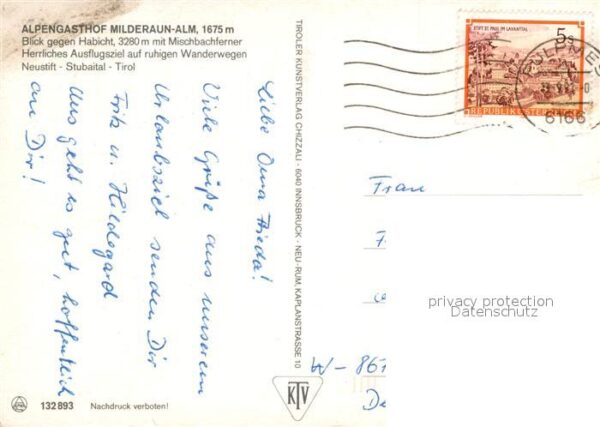 ALPENGASTHOF MILDERAUN-ALM, 1675 m
Blick gegen Habicht, 3280 m mit Mischbachferner
Herrliches Ausflugsziel auf ruhigen Wanderwegen
Neustift - Stubaital - Tirol
Liebe Oma Frieda!
Viele Grüße aus unserem
Urlaubsziel senden Dir
Fritz u. Hildegard
Uns geht es gut, hoffentlich
au Dir!
TIROLER KUNSTVERLAG CHIZZALI · 6040 INNSBRUCK - NEU-RUM, KAPLANSTRASSE 10
STIFT ST. PAUL IM LAVANTTAL
5s
REPUBLIK ÖSTERREICH
FULPMES
6166
Frau
W - 861
privacy protection
Datenschutz
KTV
132893 Nachdruck verboten!